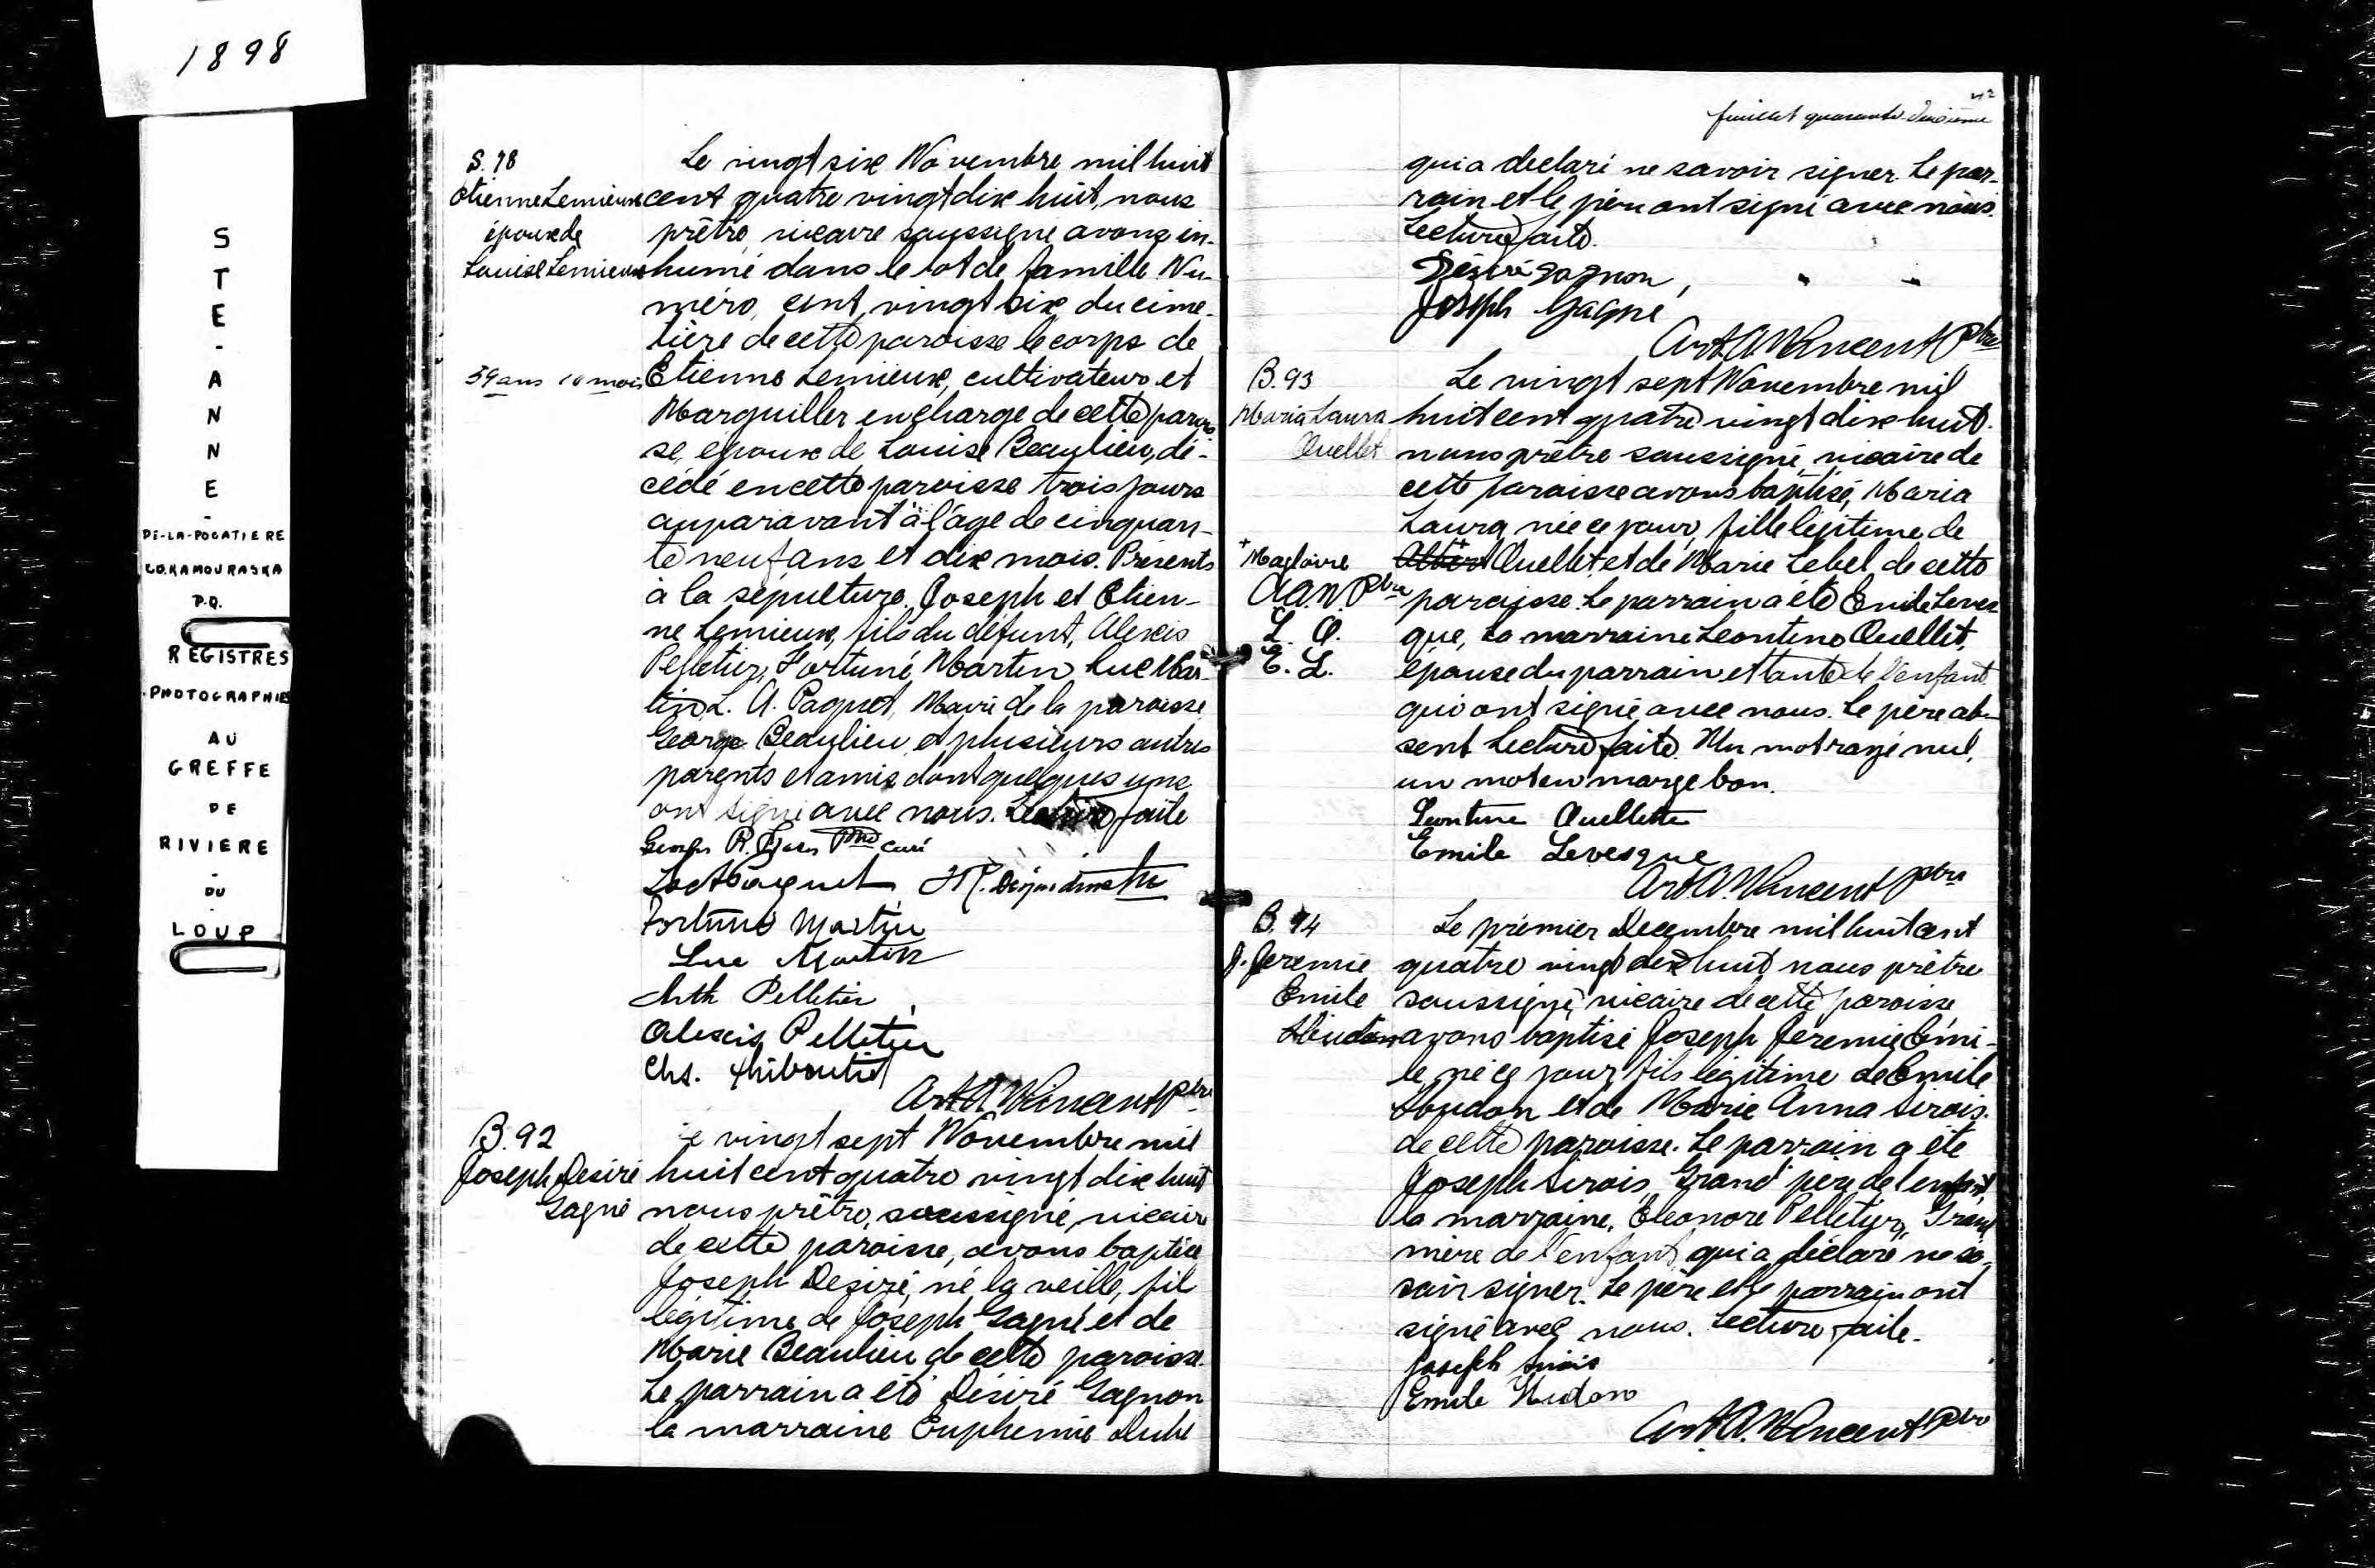 1898
STE-ANNE-
DE-LA-POCATIERE
CO. KAMOURASKA
P.Q.
REGISTRES
PHOTOGRAPHIES
AU
GREFFE
DE
RIVIERE
-
DU
-
LOUP
S. 78
Etienne Lemieux
époux de
Louise Lemieux
59 ans 10 mois
Le vingt six Novembre mil huit
cent quatre vingt dix huit, nous
prêtre, vicaire soussigné avons in-
humé dans le lot de famille Nu-
méro, cent vingt six du cime-
tière de cette paroisse le corps de
Etienne Lemieux, cultivateur et
Marguiller en charge de cette parois
se, époux de Louise Beaulieu, dé-
cédé en cette paroisse trois jours
auparavant à l'âge de cinquan-
te neuf ans et dix mois. Présents
à la sépulture. Joseph et Etien-
ne Lemieux, fils du défunt, Alexis
Pelletier, Fortuné Martin, Luc Mar-
tin, L. A. Paquet, Maire de la paroisse
George Beaulieu, et plusieurs autres
parents et amis dont quelques uns
ont signé avec nous. Lecture faite
Ptre curé
Fortuné Martin
Luc Martin
Arth Pelletier
Alexis Pelletier
Chs. Thiboutot
Art A. Vincent Ptre
B. 92
Joseph Desiré
Gagné
Le vingt sept Novembre mil
huit cent quatre vingt dix huit
nous prêtre, soussigné, vicaire
de cette paroisse, avons baptisé
Joseph Desiré, né la veille, fil
légitime de Joseph Gagné et de
Marie Beaulieu de cette paroisse.
Le parrain a été Désiré Gagnon
la marraine Euphemie Dubé
42
feuillet quarante-deuxième
qui a declaré ne savoir signer. Le par-
rain et le père ont signé avec nous.
Lecture faite.
Désiré Gagnon,
Joseph Gagné
Art. A. Vincent Ptre
B. 93
Maria Laura
Ouellet
+
Magloire
A.A.V. Ptre
L. O.
E. L.
Le vingt sept Novembre mil
huit cent quatre vingt dix huit.
nous prêtre soussigné, vicaire de
cette paroisse avons baptisé, Maria
Laura, née ce jour, fille légitime de
Albert Ouellet et de Marie Lebel de cette
paroisse. Le parrain a été Emile Leves
que, La marraine Leontine Ouellet,
épouse du parrain et tante de l'enfant
qui ont signé avec nous. Le père ab-
sent. Lecture faite. Un mot rayé nul,
un mot en marge bon.
Leontine Ouellette
Emile Levesque
Art. A. Vincent Ptre
B. 94
J. Jeremie
Emile
Hudon
Le premier Decembre mil huit cent
quatre vingt dix huit nous prêtre
soussigné, vicaire de cette paroisse
avons baptisé Joseph Jeremie Emi-
le né ce jour, fils légitime de Emile
Houdon et de Marie Anna Sirois.
de cette paroisse. Le parrain a été
Joseph Sirois, Grand père de l'enfant,
la marraine, Eleonore Pelletier, Grand
mère de l'enfant qui a déclaré ne sa-
voir signer. Le père et le parrain ont
signé avec nous. Lecture faite.
Joseph Sirois
Emile Hudon
Art. A. Vincent Ptre